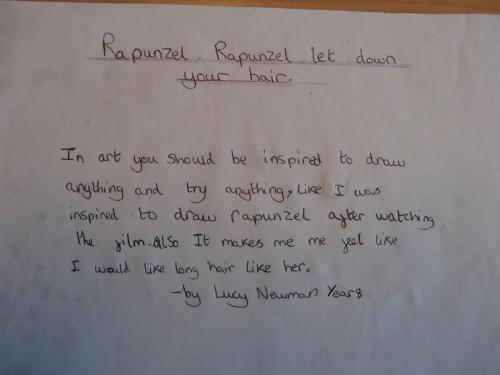 Rapunzel, Rapunzel let down
your hair.
In art you should be inspired to draw
anything and try anything, like I was
inspired to draw rapunzel after watching
the film. Also It makes me me feel like
I would like long hair like her.
-by Lucy Newman Year 8